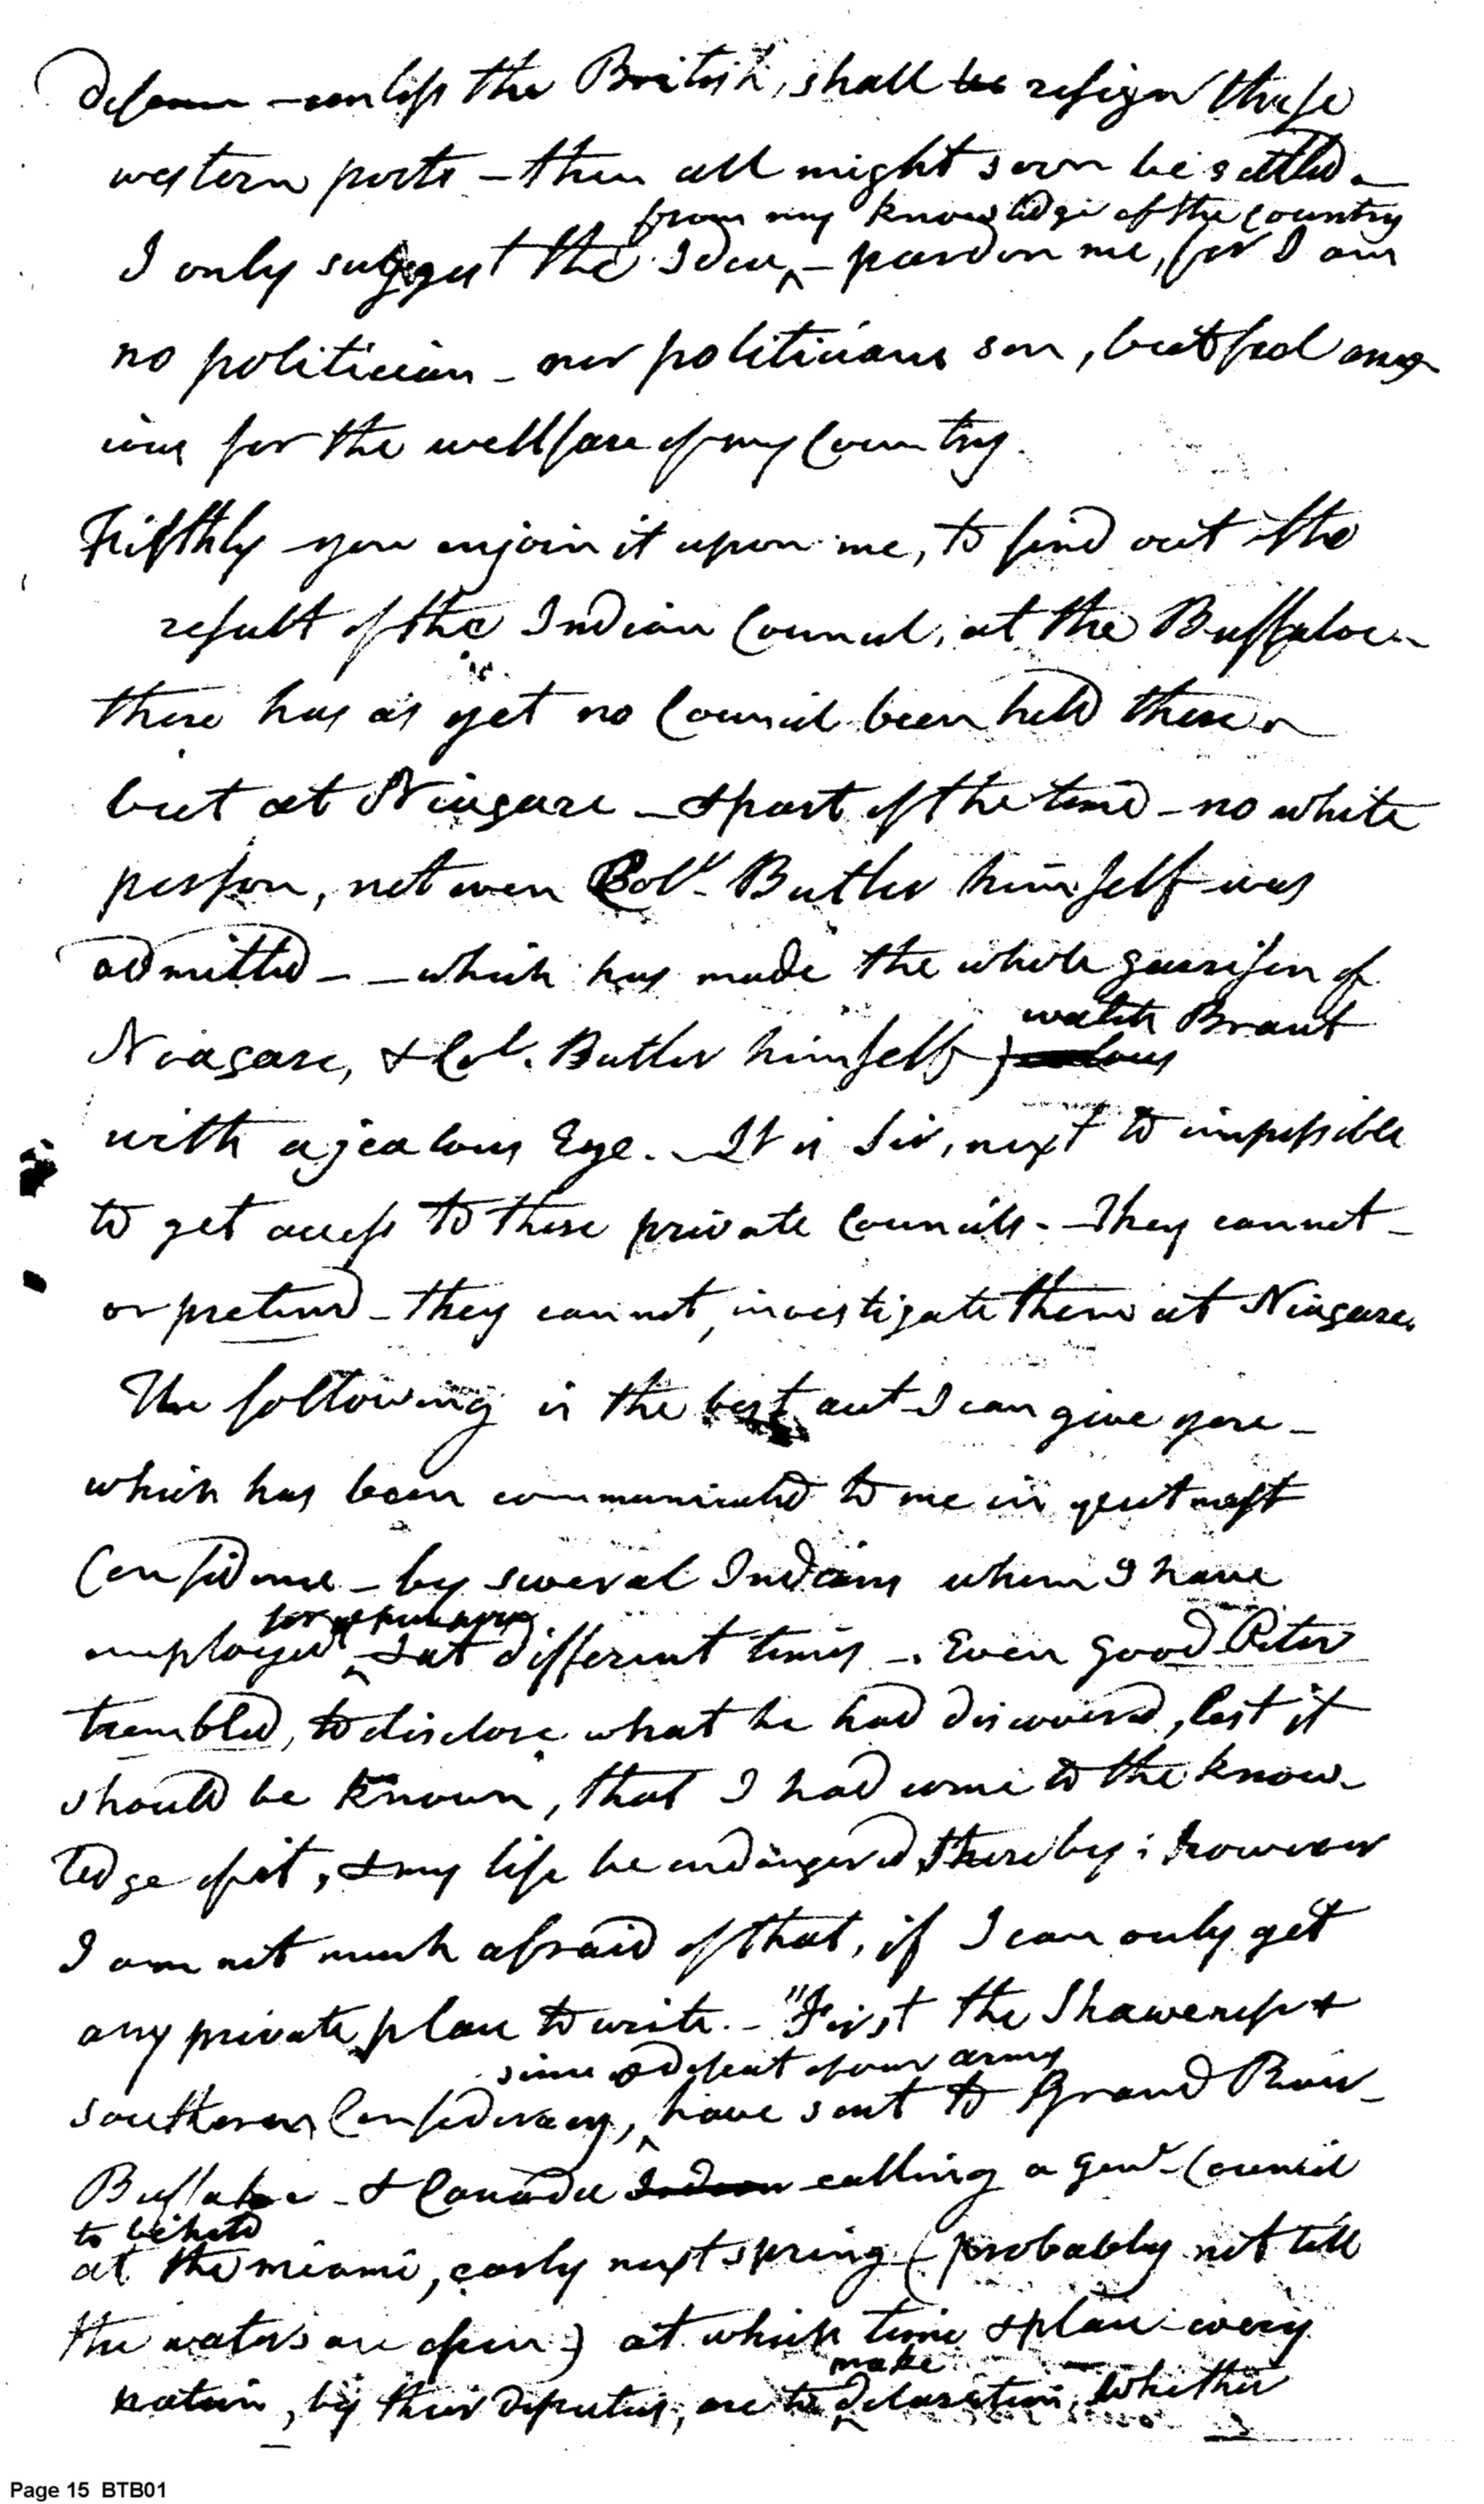 unless the British, shall be resign these
western posts – then all might soon be settled –
from my knowledge of the country
I only suggest the Idea, – pardon me, for I am
no politician – nor politicians son, but feel anx
ious for the wellfare of my Country.
Fifthly you enjoin it upon me, to find out the
result of the Indian Council, at the Buffaloe –
there has as yet no Council been held there –
but at Niagara – & part of the time – no white
person, not even Col. Butler himself was
admitted – – which has made the whole garrison of
watch Brant
Niagara, & Col. Butler himself
with a jealous Eye. – It is Sir, next to impossible
to get access to these private Councils – They cannot –
or pretend – they cannot, investigate them at Niagara.
The following is the best acct I can give you –
which has been communicated to me in greatest
Confidence – by several Indians whom I have
for the purpose
employed & at different times –. Even good Peter
trembled, to disclose what he had discovered, lest it
should be known, that I had come to the know
ledge of it, & my life be endangered thereby; however
I am not much afraid of that, if I can only get
any private place to write. – "First the Shawenese &
since ye defeat of our army
southern Confederacy, have sent to Grand River –
Buffaloe – & Canada Indian calling a genl Council
to be held
at the miami, early next spring (probably not till
the waters are open) at which time & place every
make
nation, by their Deputies, are to declaration, Whether